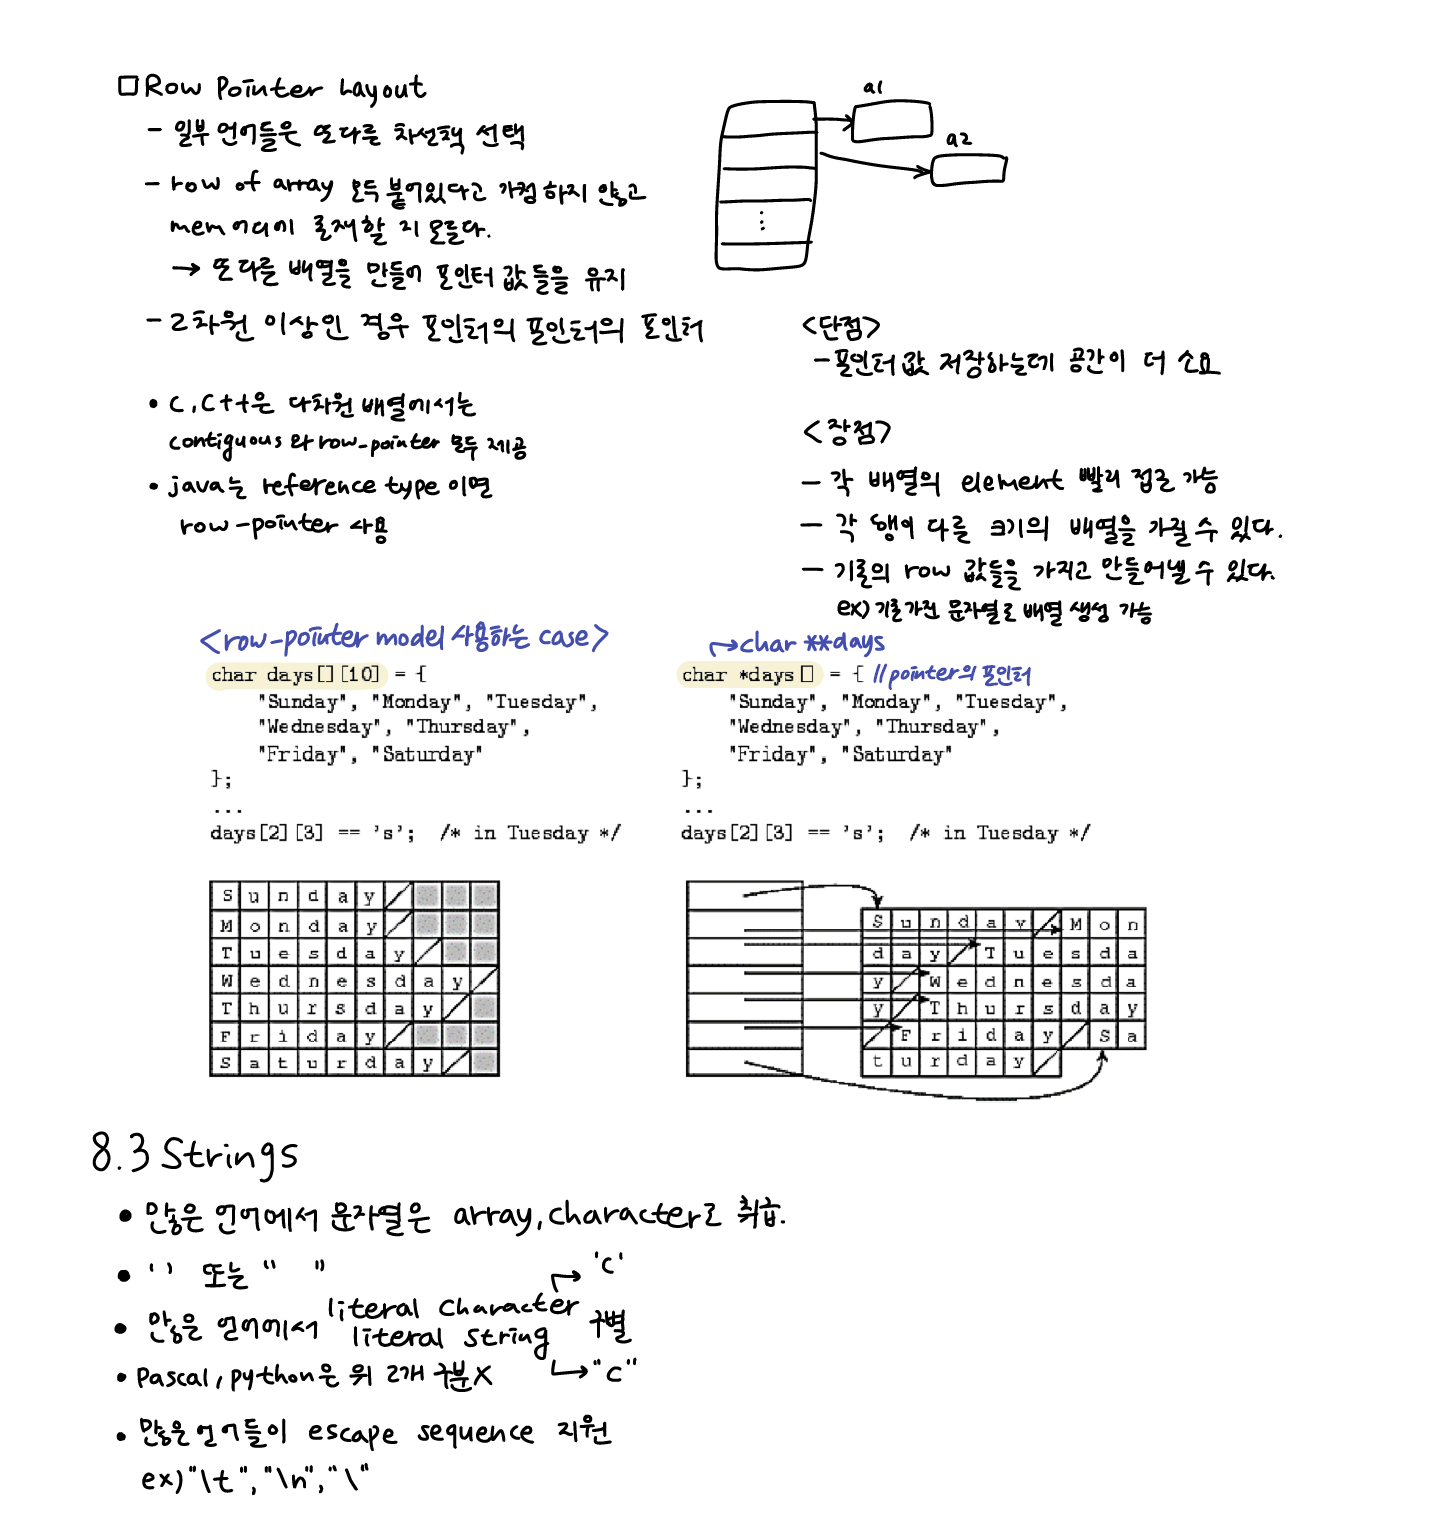 □ Row Pointer Layout
- 일부 언어들은 또다른 차선책 선택
- row of array 모두 붙어있다고 가정하지 않고
memory에 존재할 지 모른다.
→ 또다른 배열을 만들어 포인터 값들을 유지
- 2차원 이상인 경우 포인터의 포인터의 포인터
• C, C++은 다차원 배열에서는
contiguous와 row-pointer 모두 제공
• java는 reference type 이면
row-pointer 사용
a1
a2
⋮
<단점>
- 포인터 값 저장하는데 공간이 더 소요
<장점>
- 각 배열의 element 빨리 접근 가능
- 각 행이 다른 크기의 배열을 가질 수 있다.
- 기존의 row 값들을 가지고 만들어낼 수 있다.
ex) 기존가진 문자열로 배열 생성 가능
<row-pointer model 사용하는 case>
char days[][10] = {
"Sunday", "Monday", "Tuesday",
"Wednesday", "Thursday",
"Friday", "Saturday"
};
...
days[2][3] == 's'; /* in Tuesday */
↪char **days
char *days[] = { //pointer의 포인터
"Sunday", "Monday", "Tuesday",
"Wednesday", "Thursday",
"Friday", "Saturday"
};
...
days[2][3] == 's'; /* in Tuesday */
S u n d a y /
M o n d a y /
T u e s d a y /
W e d n e s d a y /
T h u r s d a y /
F r i d a y /
S a t u r d a y /
S u n d a y / M o n
d a y / T u e s d a
y / W e d n e s d a
y / T h u r s d a y
/ F r i d a y / S a
t u r d a y /
8.3 Strings
• 많은 언어에서 문자열은 array, character로 취급.
• ' ' 또는 " "
→ 'c'
• 많은 언어에서 literal character
literal string 구별
→ "c"
• Pascal, python은 위 2개 구분X
• 많은 언어들이 escape sequence 지원
ex) "\t", "\n", "\"